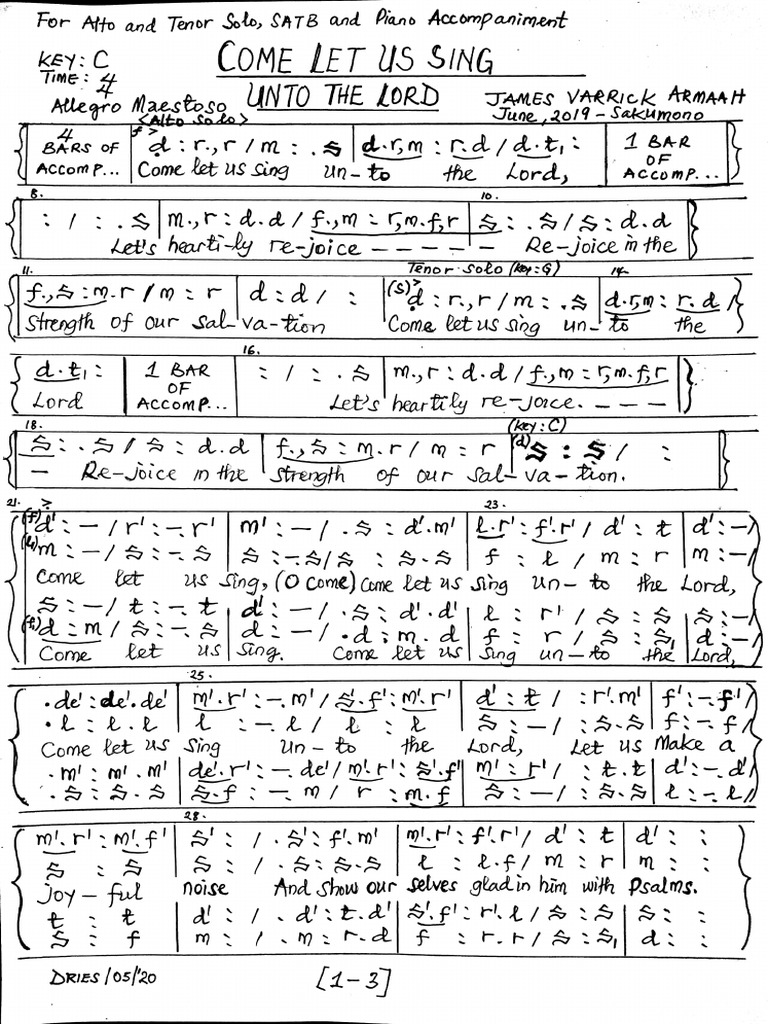 For Alto and Tenor Solo, SATB and Piano Accompaniment
KEY: C
TIME: 4/4
COME LET US SING
UNTO THE LORD
Allegro Maestoso
JAMES VARRICK ARMAAH
June, 2019 - Sakumono
<Alto Solo>
4 BARS OF ACCOMP... f > d : r., r / m : . s | d.r,m : r.d / d.t₁ : | 1 BAR OF ACCOMP...
Come let us sing un-to the Lord,
8. 10.
: / : . s | m., r : d.d / f., m = r,m.f,r | s : . s / s : d.d
Let's heartily re-joice - - - - - Re-joice in the
11. Tenor Solo (key: G) 14.
f., s : m.r / m : r | d : d / : | (s) > d : r., r / m : . s | d.r,m : r.d /
Strength of our Sal-va-tion Come let us sing un-to the
16.
d.t₁ : | 1 BAR OF ACCOMP... | : / : . s | m., r : d.d / f., m = r,m.f,r
Lord Let's heartily re-joice. - - -
18. (key: C)
s : . s / s : d.d | f., s : m.r / m : r | (d) s : s / :
- Re-joice in the Strength of our Sal-va-tion.
21. 23.
(f) > d' : - / r' : -. r' | m' : - / . s : d'.m' | l.r' : f'.r' / d' : t | d' : - /
m : - / s : -. s | s : -. s / s : s.s | f : l / m : r | m : - /
Come let us sing, (O come) come let us sing un-to the Lord,
s : - / t : -. t | d' : - / . s : d'.d' | l : r' / s : s | s : - /
d : m / s : -. s | d : - / . d : m.d | f : r / s : s₁ | d : - /
Come let us sing. Come let us sing un-to the Lord,
25.
. de' : de'.de' | m'.r' : -. m' / s'.f' : m'.r' | d' : t / : r'.m' | f' : -. f' /
. l : l.l | l : -. l / l : l | s : - / : s.s | f : -. f /
Come let us sing un-to the Lord, Let us Make a
. m' : m'.m' | de'.r' : -. de' / m'.r' : s'.f' | m' : r' / : t.t | d' : -. d' /
. s : s.s | s.f : -. m / r : m.f | s : - / : s.s | l : -. l /
28.
m'.r' : m'.f' | s' : / . s' : f'.m' | m'.r' : f'.r' / d' : t | d' : :
s : s | s : / . s : s.s | l : l.f / m : r | m : :
joy-ful noise And show our selves glad in him with Psalms.
t : t | d' : / . d' : t.d' | s'.f' : r'.l / s : s | s : :
s : f | m : / . m : r.d | f : r.r / s : s₁ | d : :
DRIES/05/'20
[1-3]